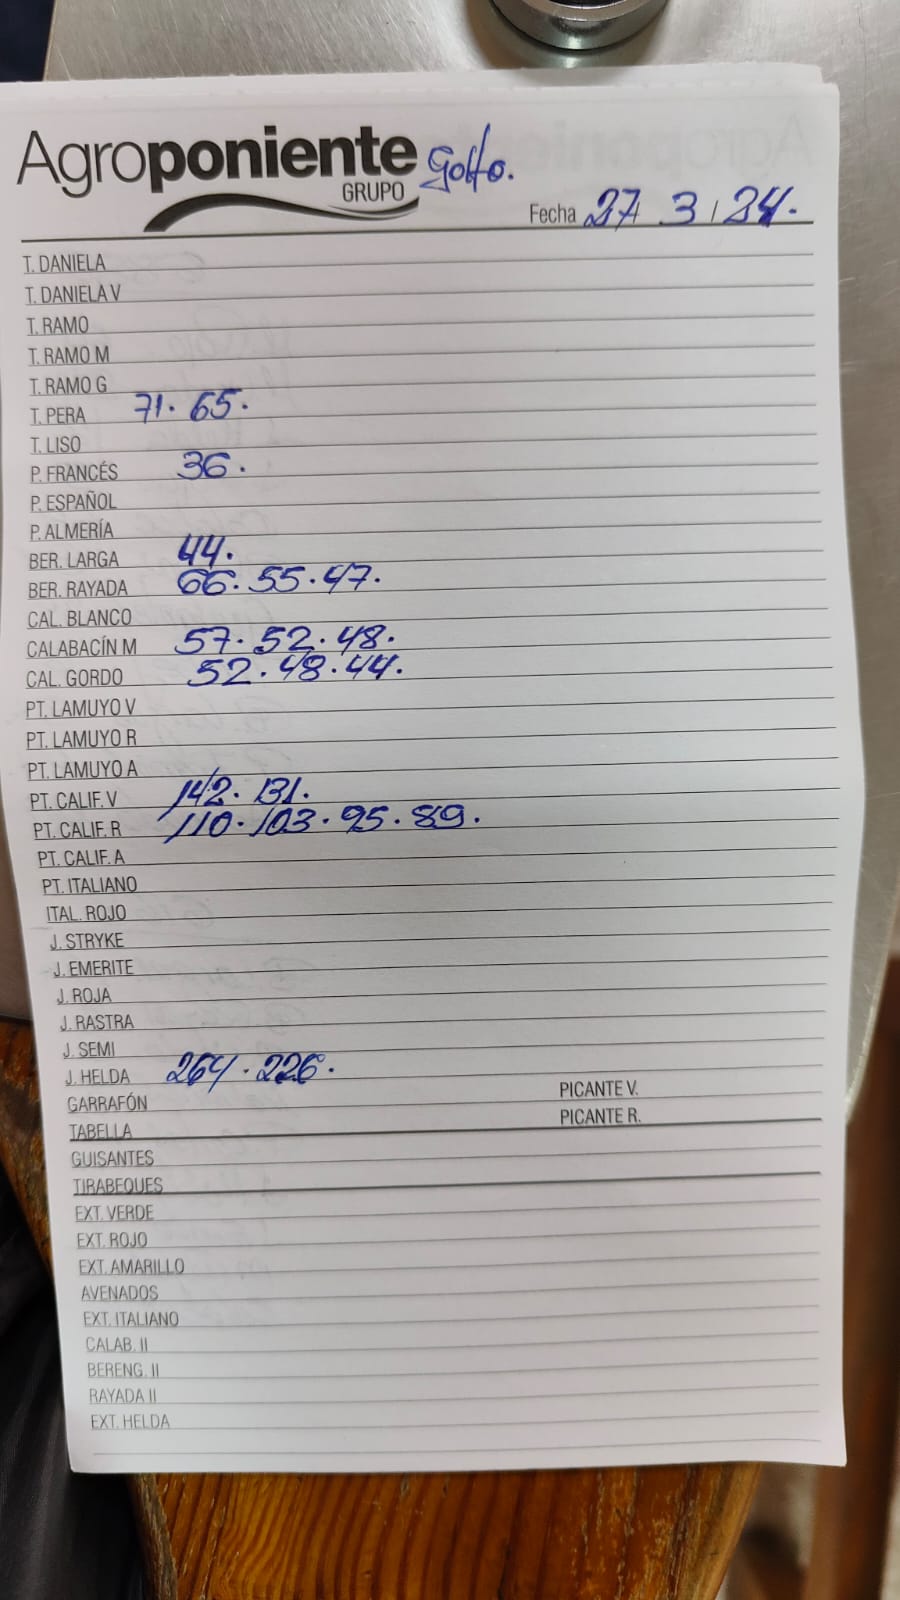 Agroponiente Golfo.
GRUPO
Fecha 27/ 3 / 24.
T. DANIELA
T. DANIELA V
T. RAMO
T. RAMO M
T. RAMO G
T. PERA 71. 65.
T. LISO
P. FRANCÉS 36.
P. ESPAÑOL
P. ALMERÍA
BER. LARGA 44.
BER. RAYADA 66. 55. 47.
CAL. BLANCO
CALABACÍN M 57. 52. 48.
CAL. GORDO 52. 48. 44.
PT. LAMUYO V
PT. LAMUYO R
PT. LAMUYO A
PT. CALIF. V 142. 131.
PT. CALIF. R 110. 103. 95. 89.
PT. CALIF. A
PT. ITALIANO
ITAL. ROJO
J. STRYKE
J. EMERITE
J. ROJA
J. RASTRA
J. SEMI
J. HELDA 264. 226.
GARRAFÓN PICANTE V.
TABELLA PICANTE R.
GUISANTES
TIRABEQUES
EXT. VERDE
EXT. ROJO
EXT. AMARILLO
AVENADOS
EXT. ITALIANO
CALAB. II
BERENG. II
RAYADA II
EXT. HELDA